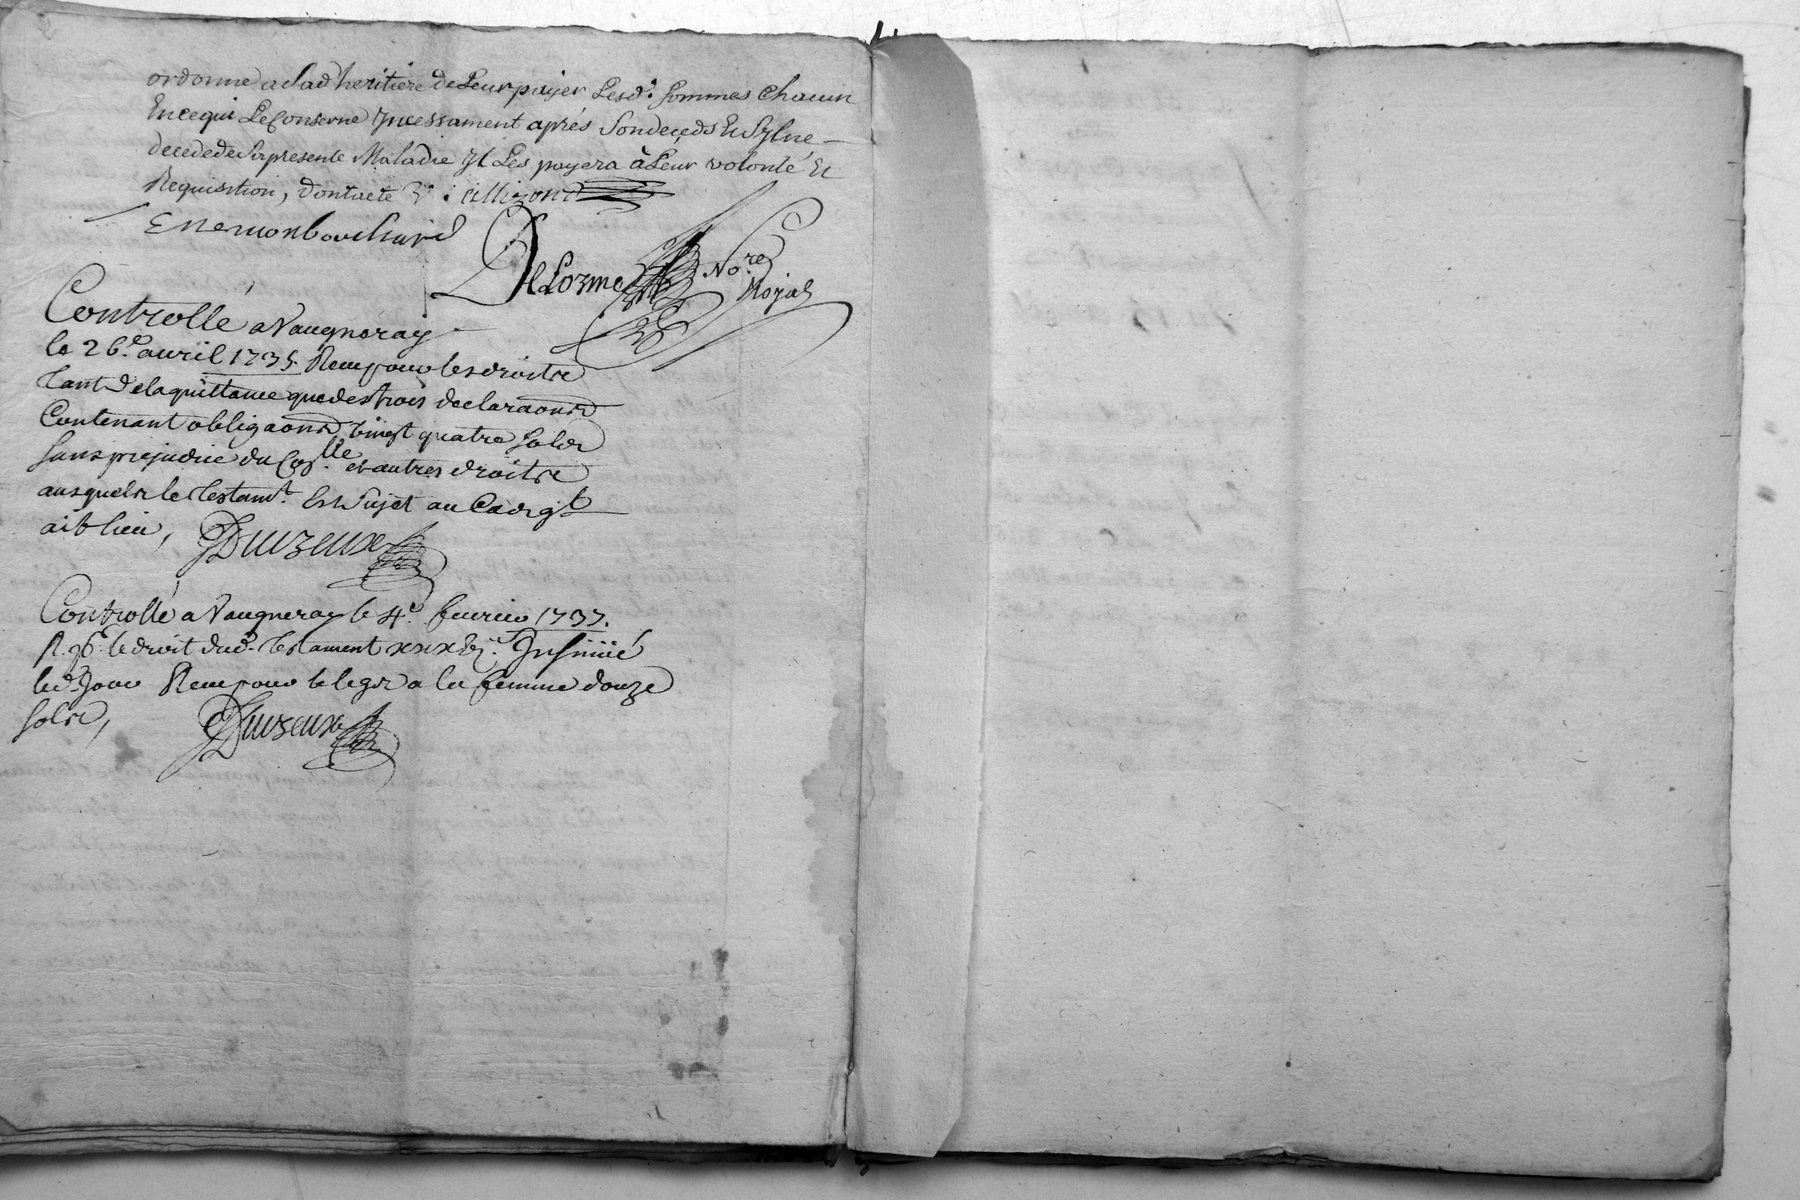 ordonne a lad heritiere de Leur payer Lesd. sommes chacun
En ce qui Le Conserne Incessament aprés Son deceds Et Sy Il ne
decede de Sa presente Maladie Il Les payera à Leur volonté Et
Requisition, dont acte
Enemon bouchard
DeLorme No.re
Royal
Controllé a Vaugneray
le 26.e avril 1735. Receu pour les droits
tant de la quittance que des trois declaraons
Contenant obligaons vingt quatre sols
sans prejudice du Con.lle et autres droits
ausquels le Testam.t Est Sujet au Cas qt
ait lieu, Duvzeux
Controllé a Vaugneray le 4.e fevrier 1737.
R. p.r le droit dud. Testament Insinüé
led. Jour Receu pour le legs a la femme douze
sols, Duvzeux